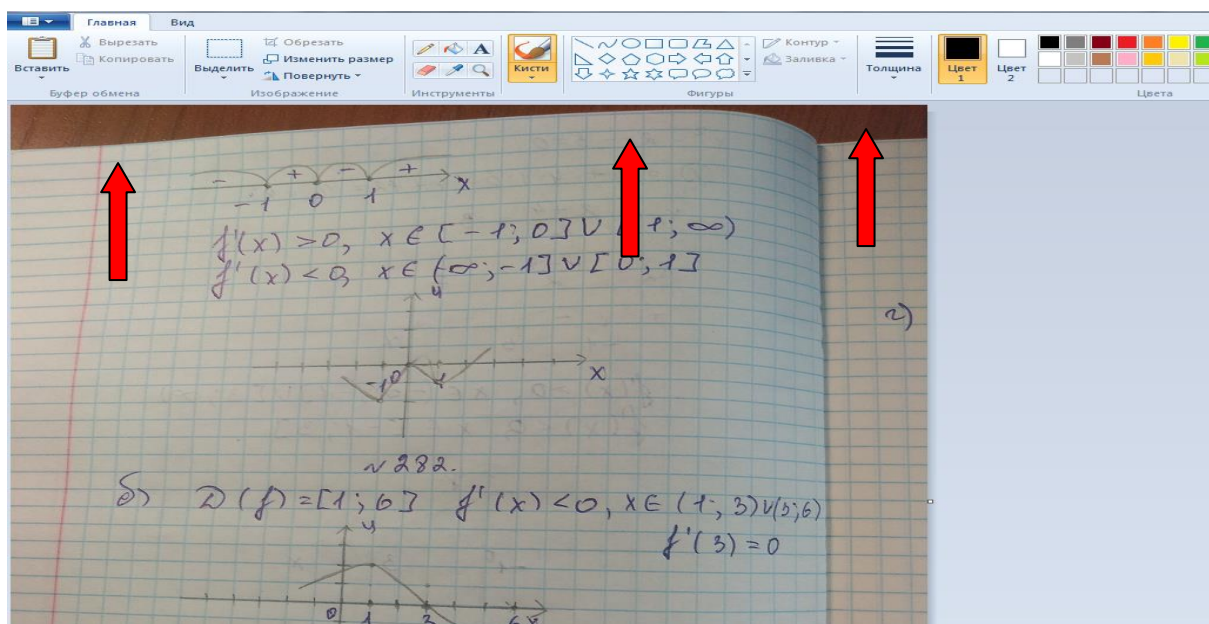 Главная Вид
Вставить
Вырезать
Копировать
Буфер обмена
Выделить
Обрезать
Изменить размер
Повернуть
Изображение
Инструменты
Кисти
Контур
Заливка
Фигуры
Толщина
Цвет 1
Цвет 2
Цвета
- + - + x
-1 0 1
f'(x) > 0, x ∈ [-1; 0] ∪ 1; ∞)
f'(x) < 0, x ∈ (∞; -1] ∪ [0; 1]
y
г)
-1 0 1 x
№282.
б) D(f) = [1; 6] f'(x) < 0, x ∈ (1; 3) ∪ (3; 6)
f'(3) = 0
y
0 1 3 6 x